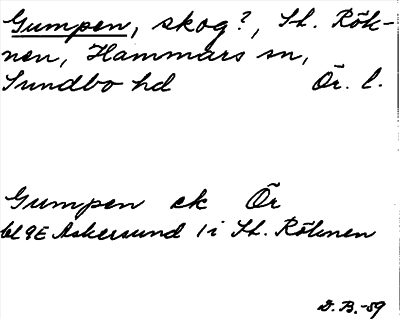 Gumpen, skog?, St. Rök-
nen, Hammars sn,
Sundbo hd Ör. l.
Gumpen ek Ör
bl 9E Askersund 1 i St. Röknen
D. B. -59